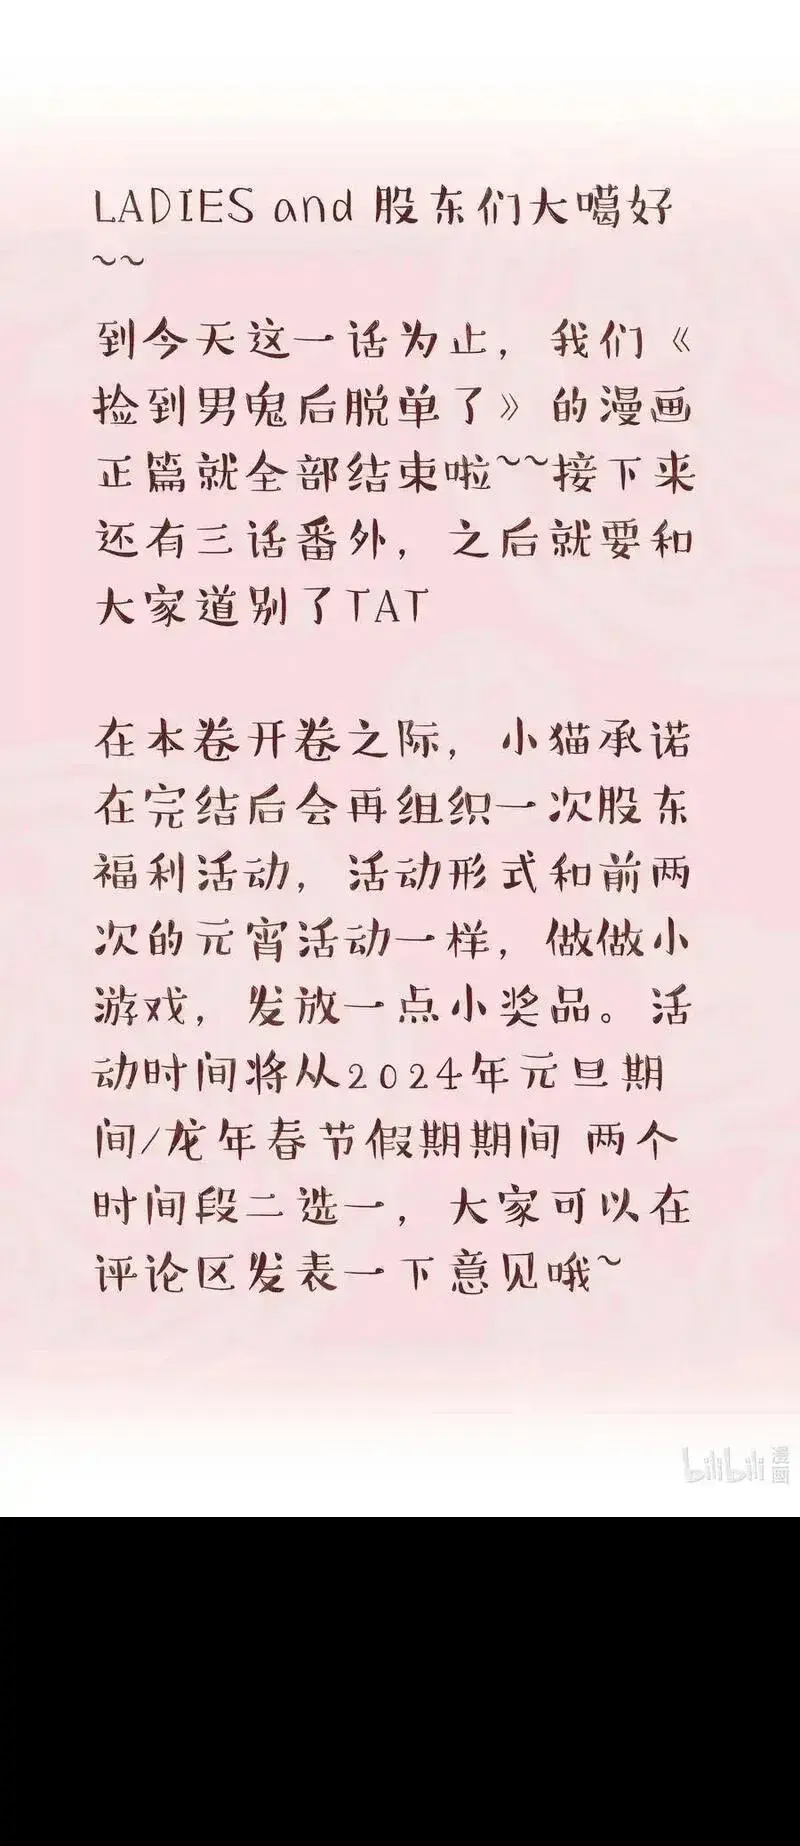 LADIES and 股东们大噶好
~~
到今天这一话为止，我们《
捡到男鬼后脱单了》的漫画
正篇就全部结束啦~~接下来
还有三话番外，之后就要和
大家道别了TAT
在本卷开卷之际，小猫承诺
在完结后会再组织一次股东
福利活动，活动形式和前两
次的元宵活动一样，做做小
游戏，发放一点小奖品。活
动时间将从2024年元旦期
间/龙年春节假期期间 两个
时间段二选一，大家可以在
评论区发表一下意见哦~
bilibili 漫画